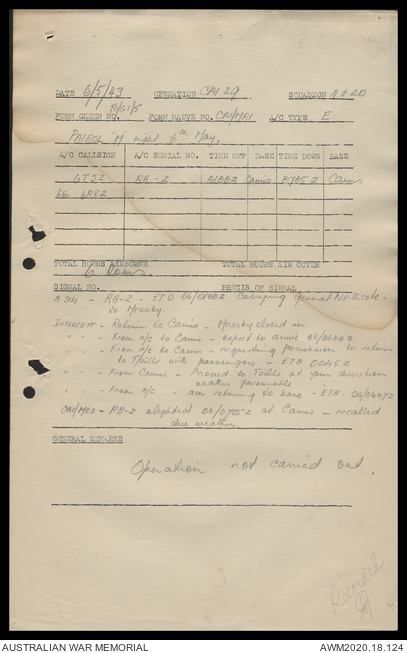 DATE 6/5/43 OPERATION CAI 29 SQUADRON 11 & 20
FORM GREEN NO. FORM MAUVE NO. CAI/MR1 A/C TYPE E
PATROL "M" night 6th May,
A/C CALLSIGN A/C SERIAL NO. TIME OFF BASE TIME DOWN BASE
RB-2 Cairns 0705Z Cairns
TOTAL HOURS AIRBORNE TOTAL HOURS AIR COVER
6 hours
SIGNAL NO. PRECIS OF SIGNAL
RB-2 - ETD Carrying General Northcote
to Moresby.
INTERCEPT - Return to Cairns - Moresby closed in
" - From A/C to Cairns - expect to arrive 06/0646Z
" - From A/C to Cairns - requesting permission to return
to T'ville with passengers - ETA 0645Z
" - From Cairns - Proceed to T'ville at your discretion
weather favourable
" - From A/C - am returning to base - ETA. 06/0647Z
CAI/MR2 - RB-2 alighted 06/0705Z at Cairns - recalled
due weather
GENERAL REMARKS
Operation not carried out.
AUSTRALIAN WAR MEMORIAL AWM2020.18.124